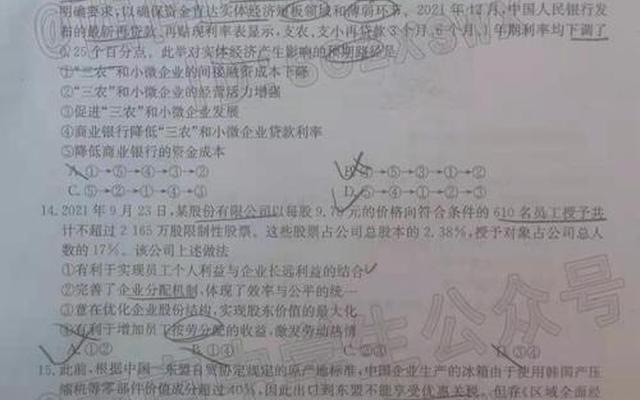 明确要求,以确保资金直达实体经济短板领域和薄弱环节。2021年12月,中国人民银行发
布的最新再贷款、再贴现利率表显示,支农、支小再贷款3个月、6个月、1年期利率均下调了
0.25个百分点。此举对实体经济产生影响的预期路径是
①“三农”和小微企业的间接融资成本下降
②“三农”和小微企业的经营活力增强
③促进“三农”和小微企业发展
④商业银行降低“三农”和小微企业贷款利率
⑤降低商业银行的资金成本
A.①→⑤→④→③→②
B.④→⑤→③→①→②
C.⑤→②→①→④→③
D.⑤→④→①→②→③
14.2021年9月23日,某股份有限公司以每股9.78元的价格向符合条件的610名员工授予共
计不超过2165万股限制性股票。这些股票占公司总股本的2.38%,授予对象占公司总人
数的17%。该公司上述做法
①有利于实现员工个人利益与企业长远利益的结合
②完善了企业分配机制,体现了效率与公平的统一
③意在优化企业股份结构,实现股东价值的最大化
④有利于增加员工按劳分配的收益,激发劳动热情
A.①② B.①④ C.②③ D.③④
15.此前,根据中国—东盟自贸协定规定的原产地标准,中国企业生产的冰箱由于使用韩国产压
缩机等零部件价值成分超过40%,因此出口到东盟不能享受优惠关税。但在《区域全面经